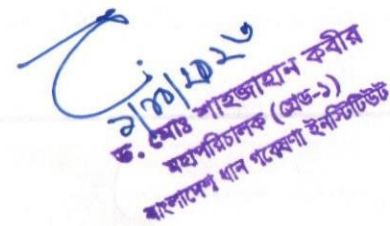 ড. মোঃ শাহজাহান কবীর
মহাপরিচালক (গ্রেড-১)
বাংলাদেশ ধান গবেষণা ইনস্টিটিউট